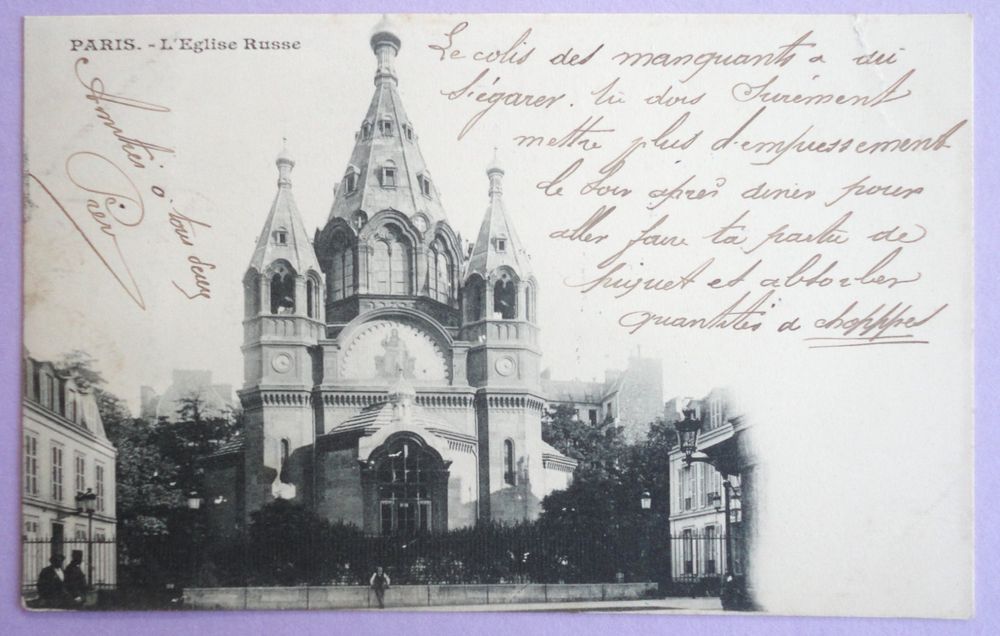 PARIS. - L'Eglise Russe
Le colis des manquants a du
s'égarer. tu dois Surement
mettre plus d'empressement
le soir après diner pour
aller faire ta partie de
piquet et absorber
quantités de chopppes
Amitiés à tous deux